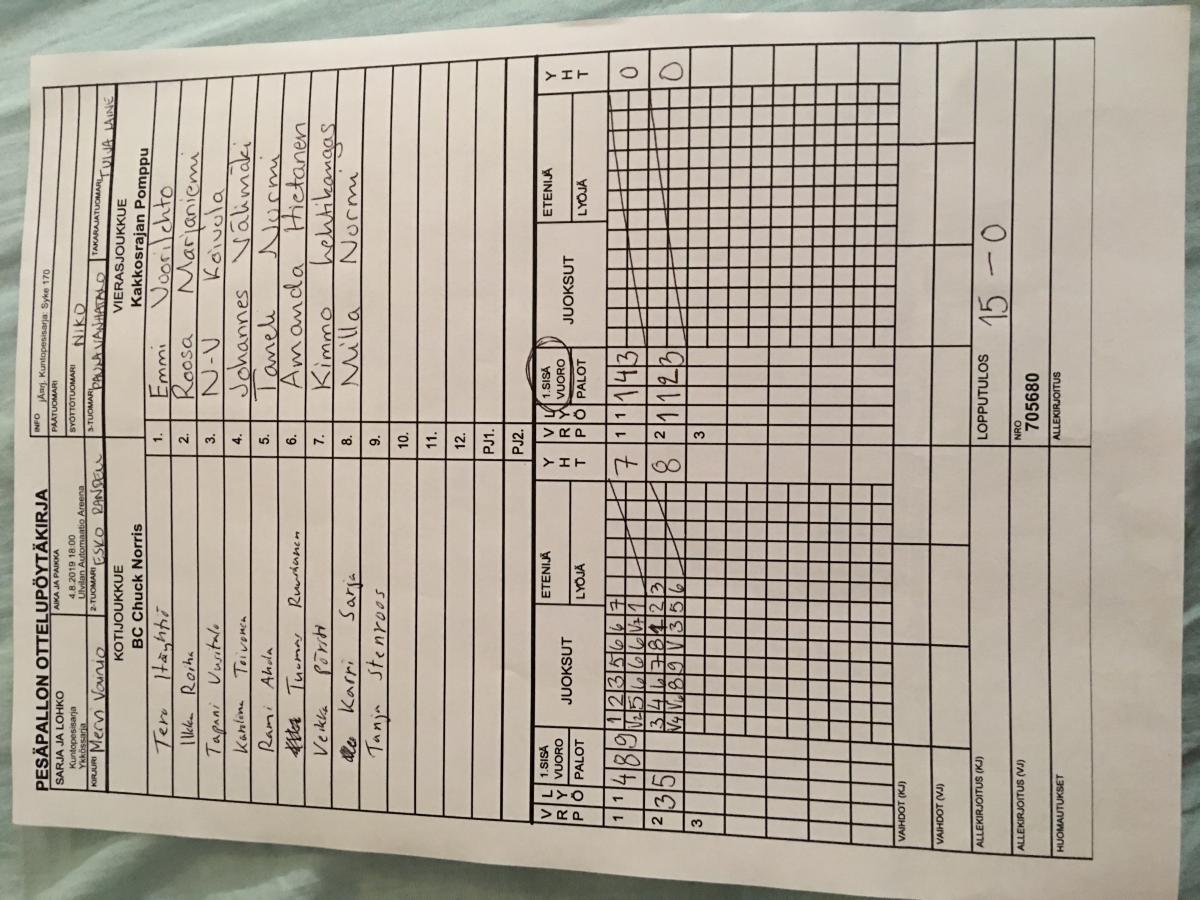 PESÄPALLON OTTELUPÖYTÄKIRJA
SARJA JA LOHKO
Kuntopesisarja
Ykkössarja
AIKA JA PAIKKA
4.8.2019 18:00
Ulvilan Automaatio Areena
INFO jAmj. Kuntopesisarja: Syke 170
PÄÄTUOMARI
SYÖTTÖTUOMARI NIKO
KIRJURI Mervi Vainio
2-TUOMARI ESKO RANDELL
3-TUOMARI PANU VANHATALO
TAKARAJATUOMARI TUIJA LAINE
KOTIJOUKKUE
BC Chuck Norris
VIERASJOUKKUE
Kakkosrajan Pomppu
Tero Itäyhtiö 1. Emmi Vuorilehto
Ilkka Roiha 2. Roosa Marjaniemi
Tapani Uusitalo 3. N-V Koivula
Katlina Toivonen 4. Johannes Välimäki
Rami Ahola 5. Taneli Nurmi
Tuomas Ruohonen 6. Amanda Hietanen
Veikka Pörsti 7. Kimmo Lehtikangas
Karri Sarja 8. Milla Nurmi
Tanja Stenroos 9.
10.
11.
12.
PJ1.
PJ2.
V R P L Y Ö 1.SISÄ VUORO PALOT JUOKSUT ETENIJÄ LYÖJÄ Y H T V R P L Y Ö 1.SISÄ VUORO PALOT JUOKSUT ETENIJÄ LYÖJÄ Y H T
1 1 4 8 9 1 2 3 5 6 6 7 7 1 1 1 4 3 0
V2 5 6 6 6 V7 1
2 3 5 3 4 6 7 8 1 2 3 8 2 1 1 2 3 0
V4 V6 8 9 V 3 5 6
3 3
VAIHDOT (KJ)
VAIHDOT (VJ)
ALLEKIRJOITUS (KJ)
LOPPUTULOS 15 - 0
ALLEKIRJOITUS (VJ)
NRO
705680
HUOMAUTUKSET
ALLEKIRJOITUS